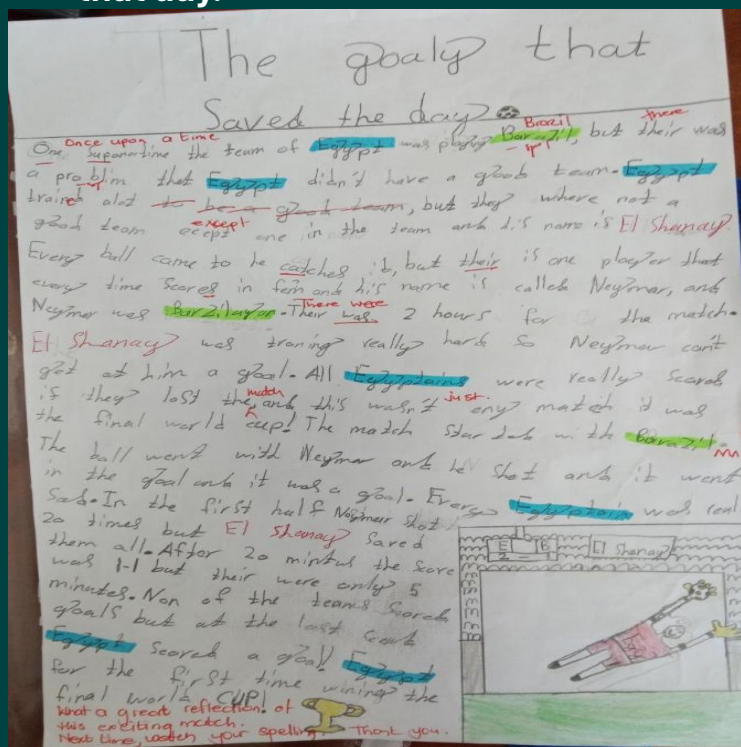 that day.
The goaly that
Saved the day
Once upon a time Brazil there
One suponatime the team of Egypt was playing Barazil, but their was
a problim that Egypt didn't have a good team. Egypt
traind alot to be a good team, but they where not a
except
good team ecept one in the team and his name is El Shanay.
Every ball came to he catches it, but their is one player that
every time scores in fem and his name is called Neymar, and
There were
Neymar was Barzilayan. Their was 2 hours for the match.
El Shanay was traning really hard so Neymar can't
get at him a goal. All Egyptains were really scared
match just
if they lost the, and this wasn't any match it was
the final world cup! The match started with the Barazil.
The ball went with Neymar and he shot and it went
in the goal and it was a goal. Every Egyptain was real
Sad. In the first half Neymar shot
20 times but El Shanay saved
them all. After 20 mintus the score
was 1-1 but their were only 5
minutes. Non of the teams scored
goals but at the last
Egypt scored a goal! Egypt
for the first time wining the
final world CUP!
What a great reflection of
this exciting match.
Next time, watch your spelling. Thank you.
E E
El Shanay